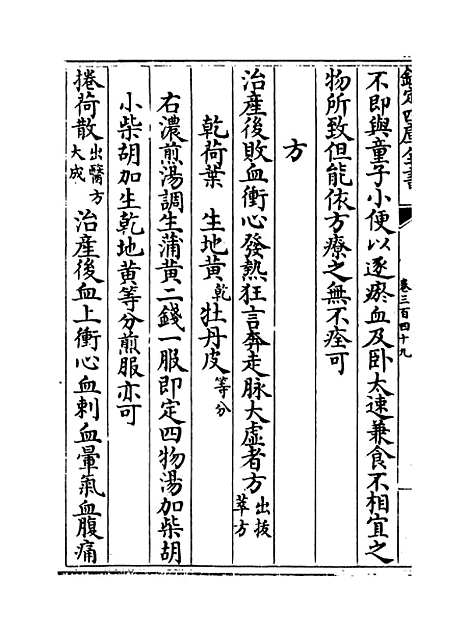 欽定四庫全書
卷三百四十九
不即與童子小便以逐瘀血及卧太速兼食不相宜之
物所致但能依方療之無不痊可
方
治産後敗血衝心發熱狂言奔走脉大虛者方出拔萃方
乾荷葉 生地黄乾 牡丹皮等分
右濃煎湯調生蒲黄二錢一服即定四物湯加柴胡
小柴胡加生乾地黄等分煎服亦可
捲荷散出醫方大成 治産後血上衝心血刺血暈氣血腹痛